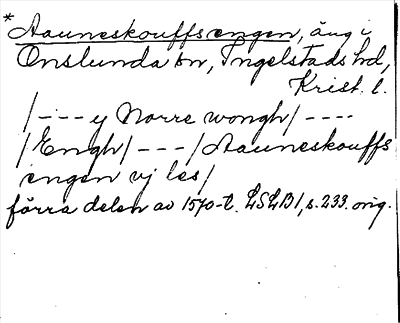 *Aauneskouffsengen, äng i
Onslunda sn, Ingelstads hd,
Krist. l.
/--- y Norre wongh/----
/Engh/---/Aauneskouffs
engen vj les/
förra delen av 1570-t. LSLB1, s. 233. orig.